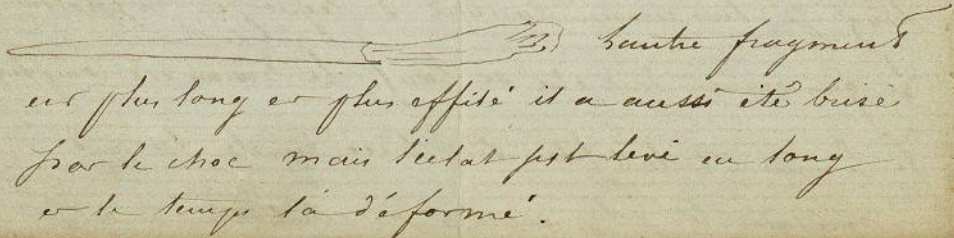 L'autre fragment
est plus long et plus effilé il a aussi été brisé
par le choc mais l'éclat s'est levé en long
et le temps l'a déformé.